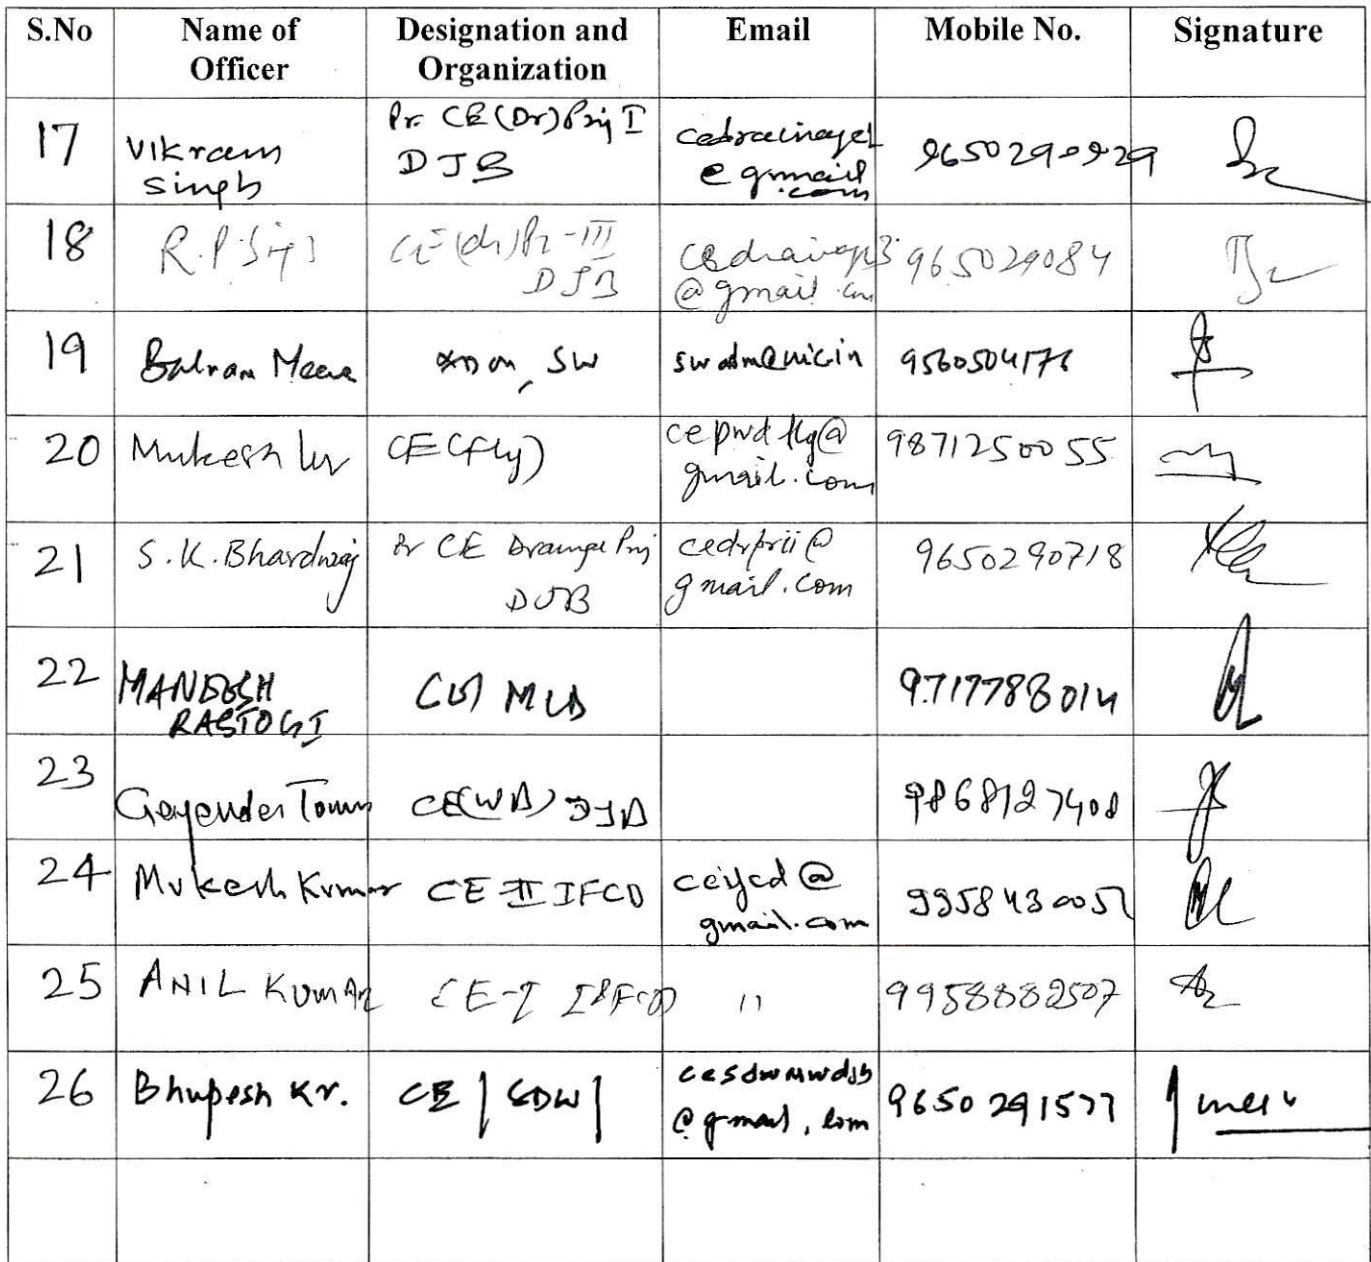 S.No Name of Officer Designation and Organization Email Mobile No. Signature
17 Vikram Singh Pr. CE (Dr) Prij I DJB @gmail.com
18 R.P. CE (dr) Pr-III DJB @gmail.com 965029084
19 Balram Meena ADM, SW 9560504176
20 Mukesh CE (Flg) cepwdflg@gmail.com 9871250055
21 S.K. Bhardwaj Pr CE Drainage Prij DJB cedrprii@gmail.com 9650290718
22 MANEESH RASTOGI 9717788014
23 CE(WB) DJB 9868127408
24 Mukesh Kumar CE-II IFCD ceifcd@gmail.com 9958430057
25 ANIL KUMAR CE-I I&FCD " 9958882507
26 Bhupesh Kr. CE | SDW | @gmail.com 9650291577